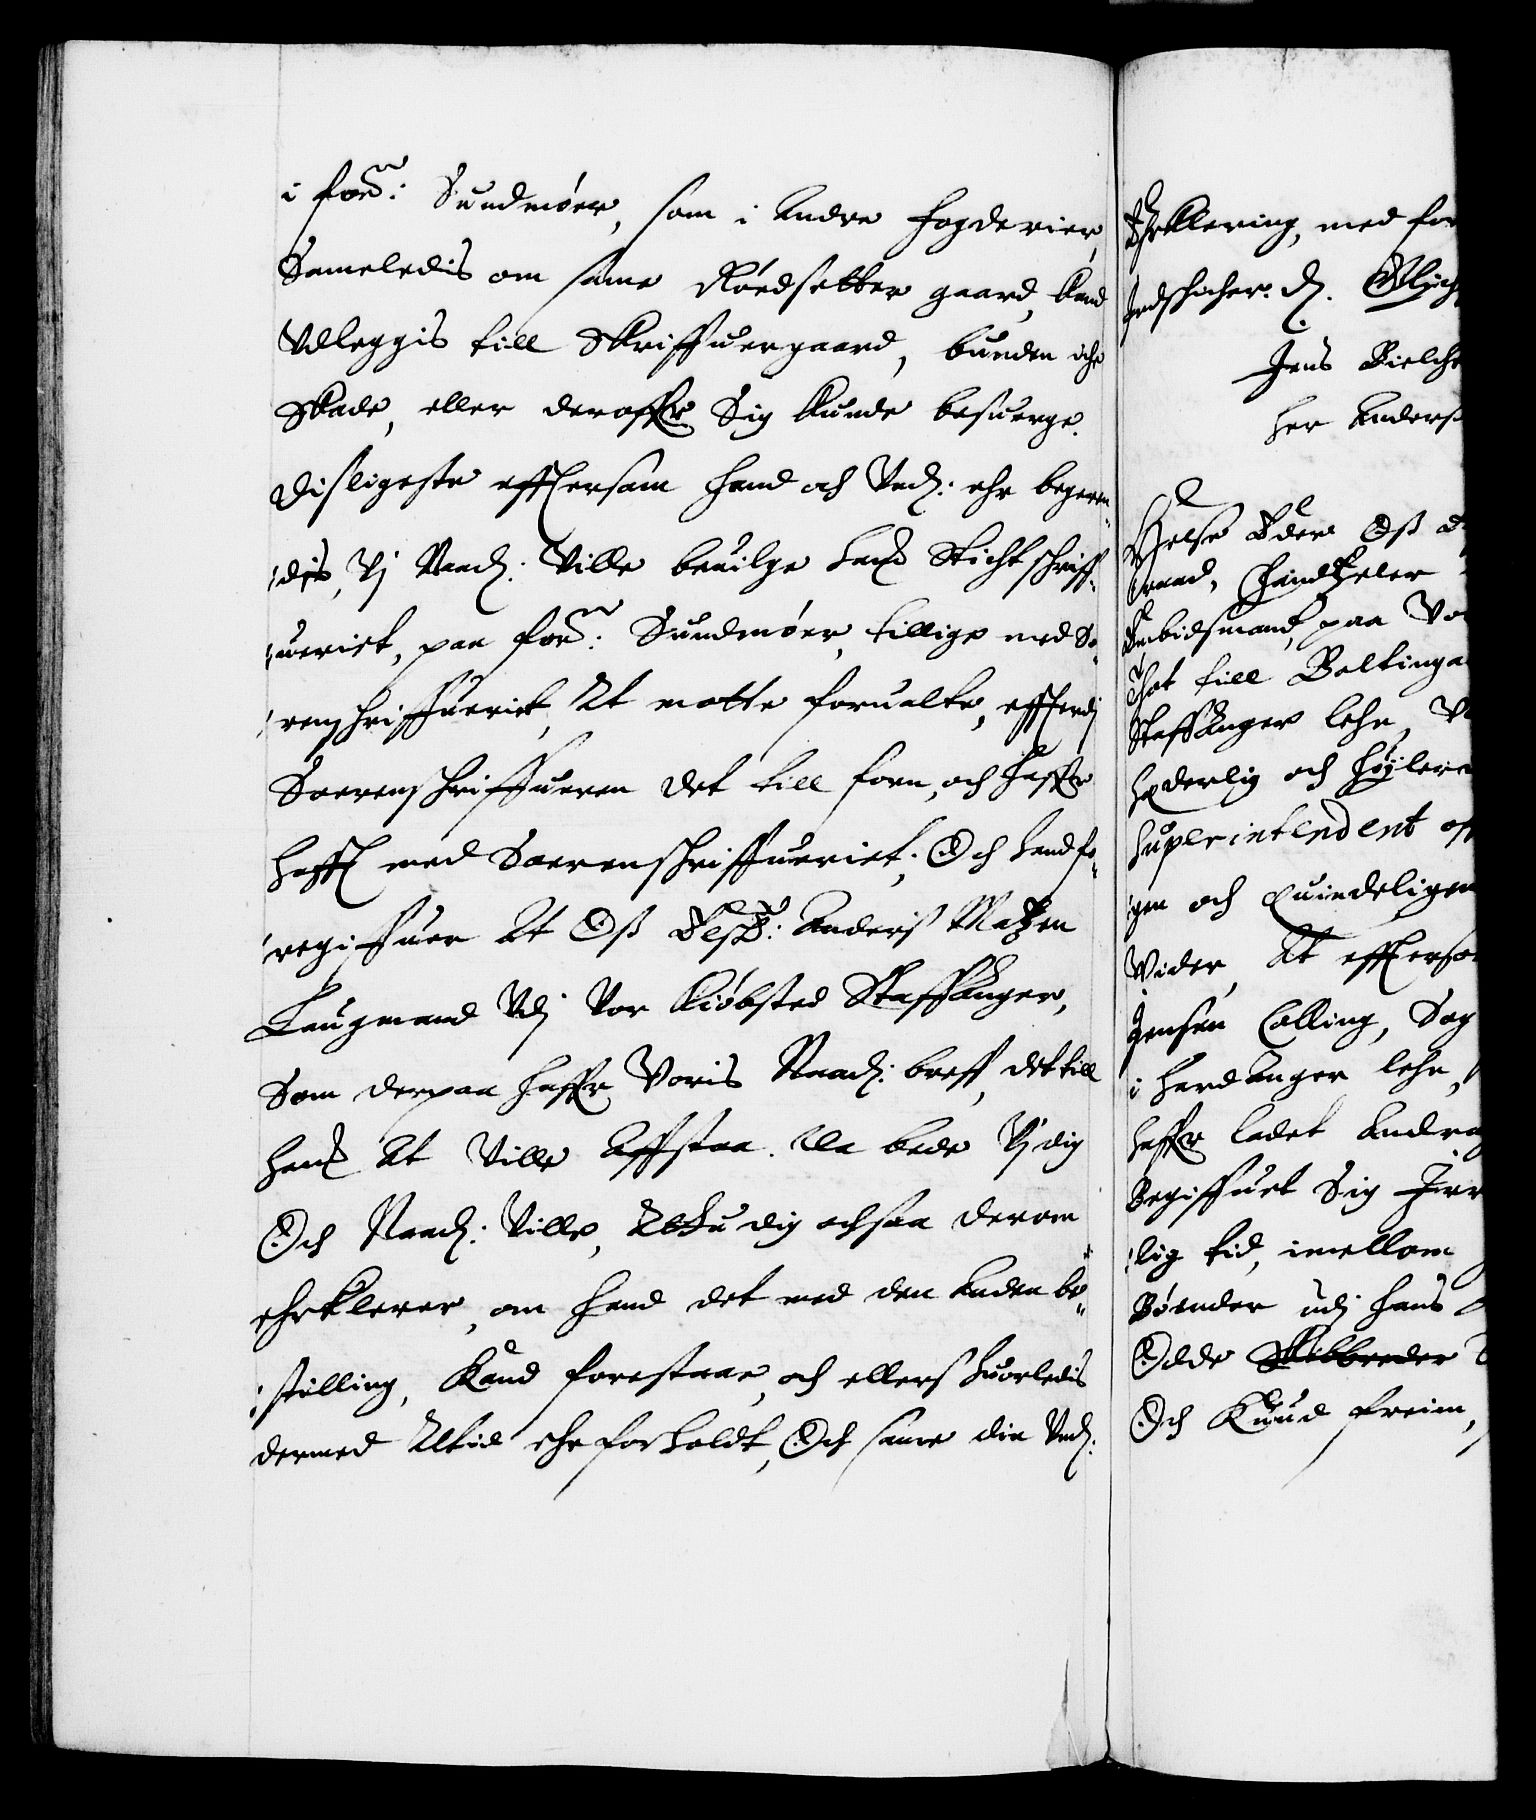 i forn: Sundmøer, som i andre fogderier,
Sameledis om samme Nordsetter gaard, kand
Vdleggis till Skriffuergaard, bunden iche
skade, eller deroffr Sig kunde besuerge.
Disligeste effersom hand och Vnd: ehr begeren-
dis, Vj Naad: Ville beuilge hans Stichtschriff-
ueriet, paa forn: Sundmøer, tillige med So-
renschriffueriet, At motte forualte, efferdj
Sorenschriffueren det till forn, och haffr
hafft med Sorenschriffueriet; Och hand fo-
regiffuer At Oß Elsk: Anders Matzen
Laugmand Vdj Vor Kiøbsted Staffanger,
Som derpaa haffr Voris Naad: breff, det till
hans At Ville affstaa. Da bede Vj dig
Och Naad: Ville, At du dig ochsaa derom
ehrklerer, om hand det med den anden be-
stilling, kand forestaae, och ellers huorledis
dermed Altid ehr forholdt, Och samme din Vnd:
Ehrklering, med for
Indschicher. d.
Jens Bielche
her Anders
Helse Eder Oß
raad, Cantzeler
Embidsmand, paa Vor
Thot till Boltinga
Staffanger lehn, V
hederlig och Høylerd
Superintendent off
gen och Quindeligen
Vider, At effersom
Jensen Colling, Sog
i Hardanger lehn,
haffr ladet andrag
Begiffuet Sig Jrr
lig tid, imellom
Bønder udj hans
Odde Skibbreder
Och Knud Freim,